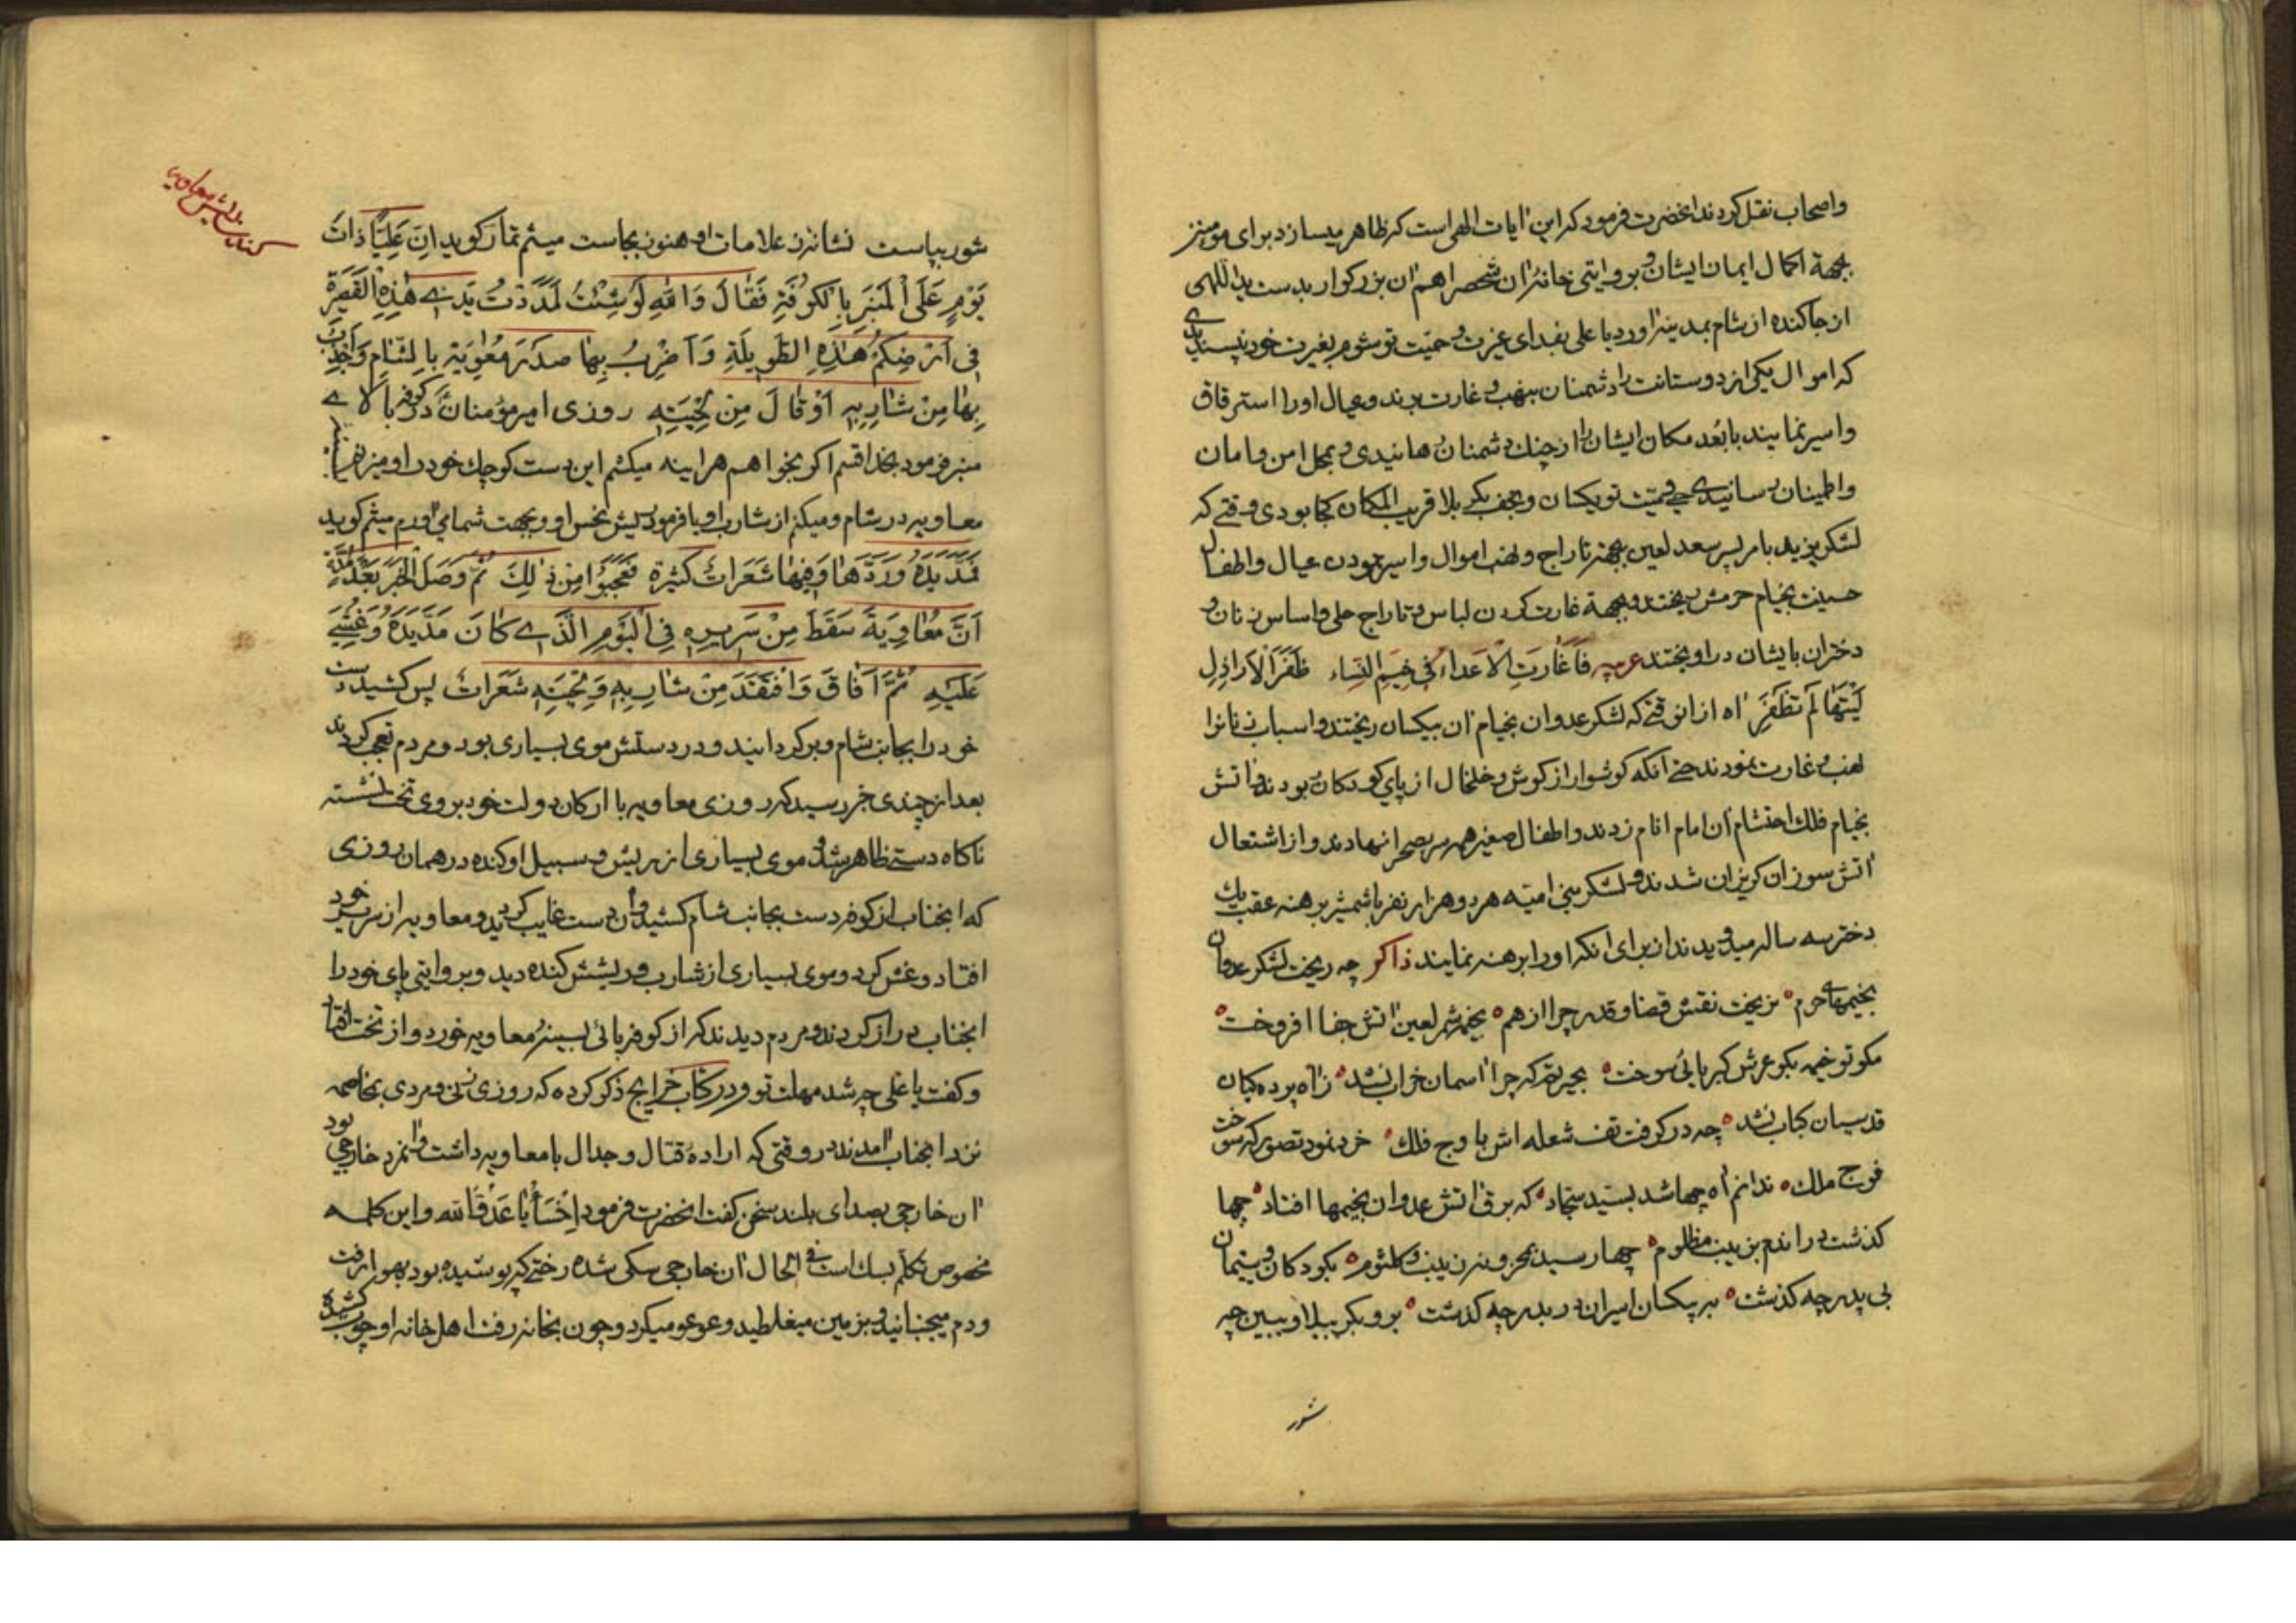 واصحاب نقل کردند انحضرت فرمود که این ایات الهی است که ظاهر میسازد برای مؤمنین
بجهة اکمال ایمان ایشان و بروایتی خانهٔ ان شخصرا هم ان بزرکوار بدست یداللهی
از جا کنده از شام بمدینه اورد یا علی بفدای غیرت و حمیّت تو شوم بغیرت خود نپسندیدی
که اموال یکی از دوستانت را دشمنان بنهب و غارت برند و عیال اورا استرقاق
واسیر نمایند با بُعد مکان ایشان را از چنك دشمنان رهانیدی و بمحل امن و امان
واطمینان رسانیدی حمیّت تو یکسان و نجف بکربلا قریب المکان کجا بودی وقتی که
لشکر یزید بامر پسر سعد لعین بجهتر تاراج و نهب اموال و اسیر نمودن عیال و اطفال
حسینت بخیام حرمش ریختند و بجهة غارت کردن لباس و تاراج حلی و اساس زنان و
دختران بایشان دراویختند عربیه فَاَغَارَتِ الْاَعداءُ فی خِیَمِ النِّساء ظَفَرَ الاَراذِلِ
لَیْتَهَا لَمْ تَظْفَرِ اه از ان وقتی که لشکر عدوان بخیام ان بیکسان ریختند و اسباب زنانرا
نهب و غارت نمودند حتی آنکه کوشوار از کوش و خلخال از پای کودکان ربودند و اتش
بخیام فلك احتشام ان امام انام زدند و اطفال صغیر همه سر بصحرا نهادند و از اشتعال
اتش سوزان کریزان شدند و لشکر بنی امیّه هر دو هزار نفر با شمشیر برهنه عقب یك
دختر سه ساله میدویدند از برای انکه اورا برهنه نمایند ذاکر چه ریخت لشکر عدوان
بخیمهای حرم نریخت نقش قضا و قدر چرا از هم بخیمه شمر لعین اتش جفا افروخت
مکو تو خیمه بکو عرش کبریائی سوخت بحیرتم که چرا اسمان خراب نشد ز اه پرده کیان
قدسیان کباب نشد چه درکرفت تف شعله اش باوج فلك خرد نمود تصور که سوخت
فوج ملك ندانم اه چها شد بسیّد سجّاد که برق اتش عدوان بخیمها افتاد چها
کذشت دراندم بزینب مظلوم چها رسید بمحزون زینب و کلثوم بکودکان و یتیمان
بی پدر چه کذشت به بیکسان اسیران دربدر چه کذشت برو بکربلا و ببین چه
شور
شور بپاست نشانهٔ علامات او هنوز بجاست میثم تمار کوید اِنَّ عَلِیّاً ذاتَ
یَوْمٍ عَلَی الْمِنْبَرِ بِالْکُوفَةِ فَقالَ وَاللهِ لَوْ شِئْتُ لَمَدَدْتُ یَدی هٰذِهِ الْقَصیرَةَ
فی اَرْضِکُمْ هٰذِهِ الطَّویلَةِ وَ اَضْرِبُ بِها صَدْرَ مُعاوِیَةَ بِالشّامِ وَاَجْذِبُ
بِها مِنْ شارِبِهِ اَوْ قالَ مِنْ لِحْیَتِهِ روزی امیر مؤمنان در کوفه بالای
منبر فرمود بخدا قسم اکر بخواهم هراینه میکشم این دست کوچك خود را و میزنم بسینه
معاویه در شام و میکنم از شارب او یا فرمود ریش نجس او و بجهت شما می اورم میثم کوید
فَمَدَّ یَدَهُ وَرَدَّها وَفیها شَعَراتٌ کَثیرَة فَعَجِبُوا مِنْ ذٰلِكَ ثُمَّ وَصَلَ الْخَبَرُ بَعْدَ مُدَّةٍ
اَنَّ مُعاوِیَةَ سَقَطَ مِنْ سَریرِهِ فِی الْیَوْمِ الَّذی کانَ مَدَّ یَدَهُ وَغُشِیَ
عَلَیْهِ ثُمَّ اَفاقَ وَافْتَقَدَ مِنْ شارِبِهِ وَ لِحْیَتِهِ شَعَراتٌ پس کشید دست
خود را بجانب شام و برکردانید و در دستش موی بسیاری بود و مردم تعجب کردند
بعد از چندی خبر رسید که روزی معاویه با ارکان دولت خود بر روی تخت نشسته
ناکاه دستی ظاهر شد و موی بسیاری از ریش و سبیل او کنده در همان روزی
که انجناب از کوفه دست بجانب شام کشید و ان دست غایب کردید و معاویه از سریر خود
افتاد و غش کرد و موی بسیاری از شارب و ریشش کنده دید و بروایتی پای خود را
انجناب دراز کردند و مردم دیدند که از کوفه پائی بسینهٔ معاویه خورد و از تخت افتاد
وکفت یا علی چه شد مهلت تو و در کتاب خرایج ذکر کرده که روزی زنی و مردی بمخاصمه
نزد انجناب امدند در وقتی که ارادهٔ قتال و جدال با معاویه داشت و انمرد خارجی بود
ان خارجی بصدای بلند سخن کفت انحضرت فرمود اِخْسَأْ یا عَدُوَّ الله و این کلمه
مخصوص تکلّم بسك است فی الحال ان خارجی سکی شده رختی که پوشیده بود بهوا رفت
ودم میجنبانید و بزمین میغلطید و عوعو میکرد و چون بخانه رفت اهل خانه او چوب کشیده